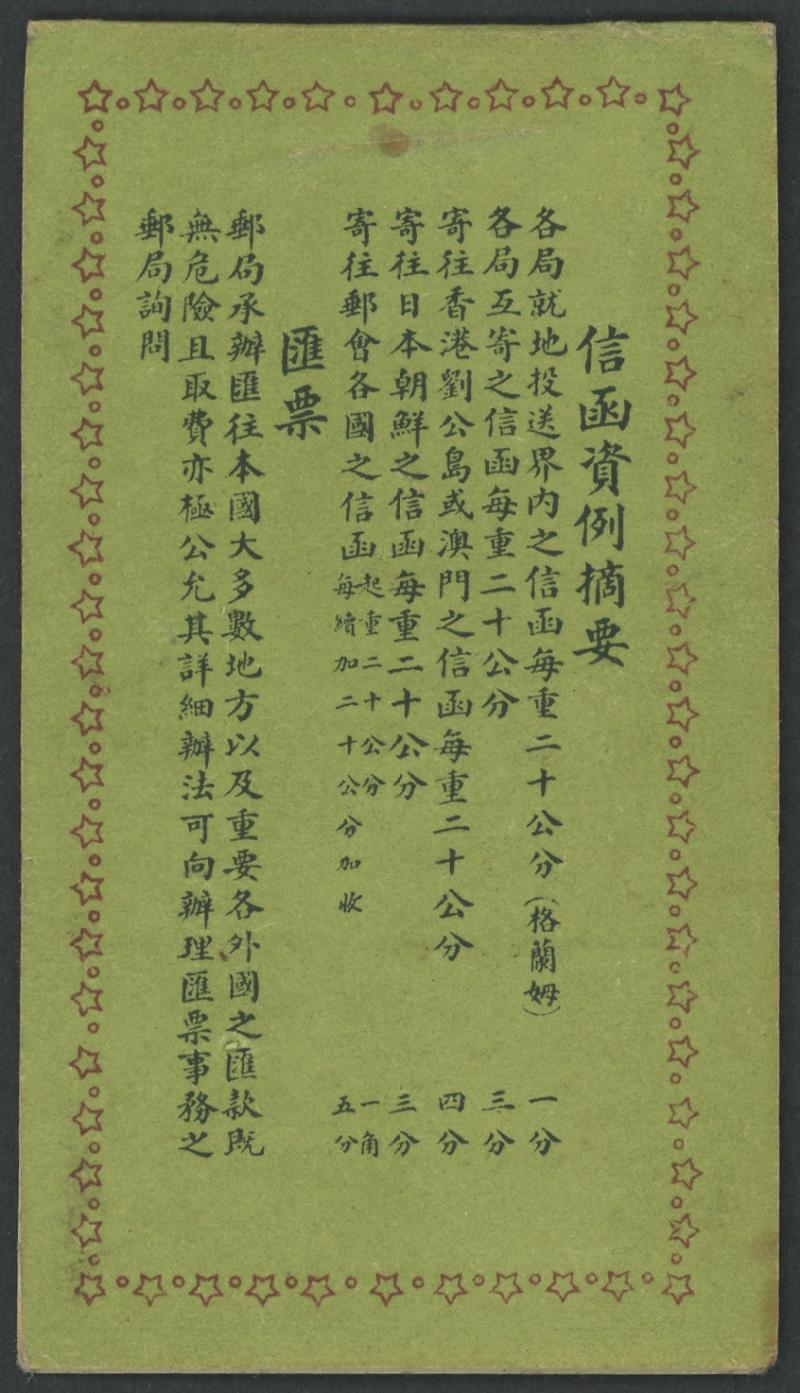 信函資例摘要
各局就地投送界內之信函每重二十公分(格蘭姆) 一分
各局互寄之信函每重二十公分 三分
寄往香港劉公島或澳門之信函每重二十公分 四分
寄往日本朝鮮之信函每重二十公分 三分
寄往郵會各國之信函 起重二十公分 一角
每續加二十公分加收 五分
匯票
郵局承辦匯往本國大多數地方以及重要各外國之匯款既
無危險且取費亦極公允其詳細辦法可向辦理匯票事務之
郵局詢問